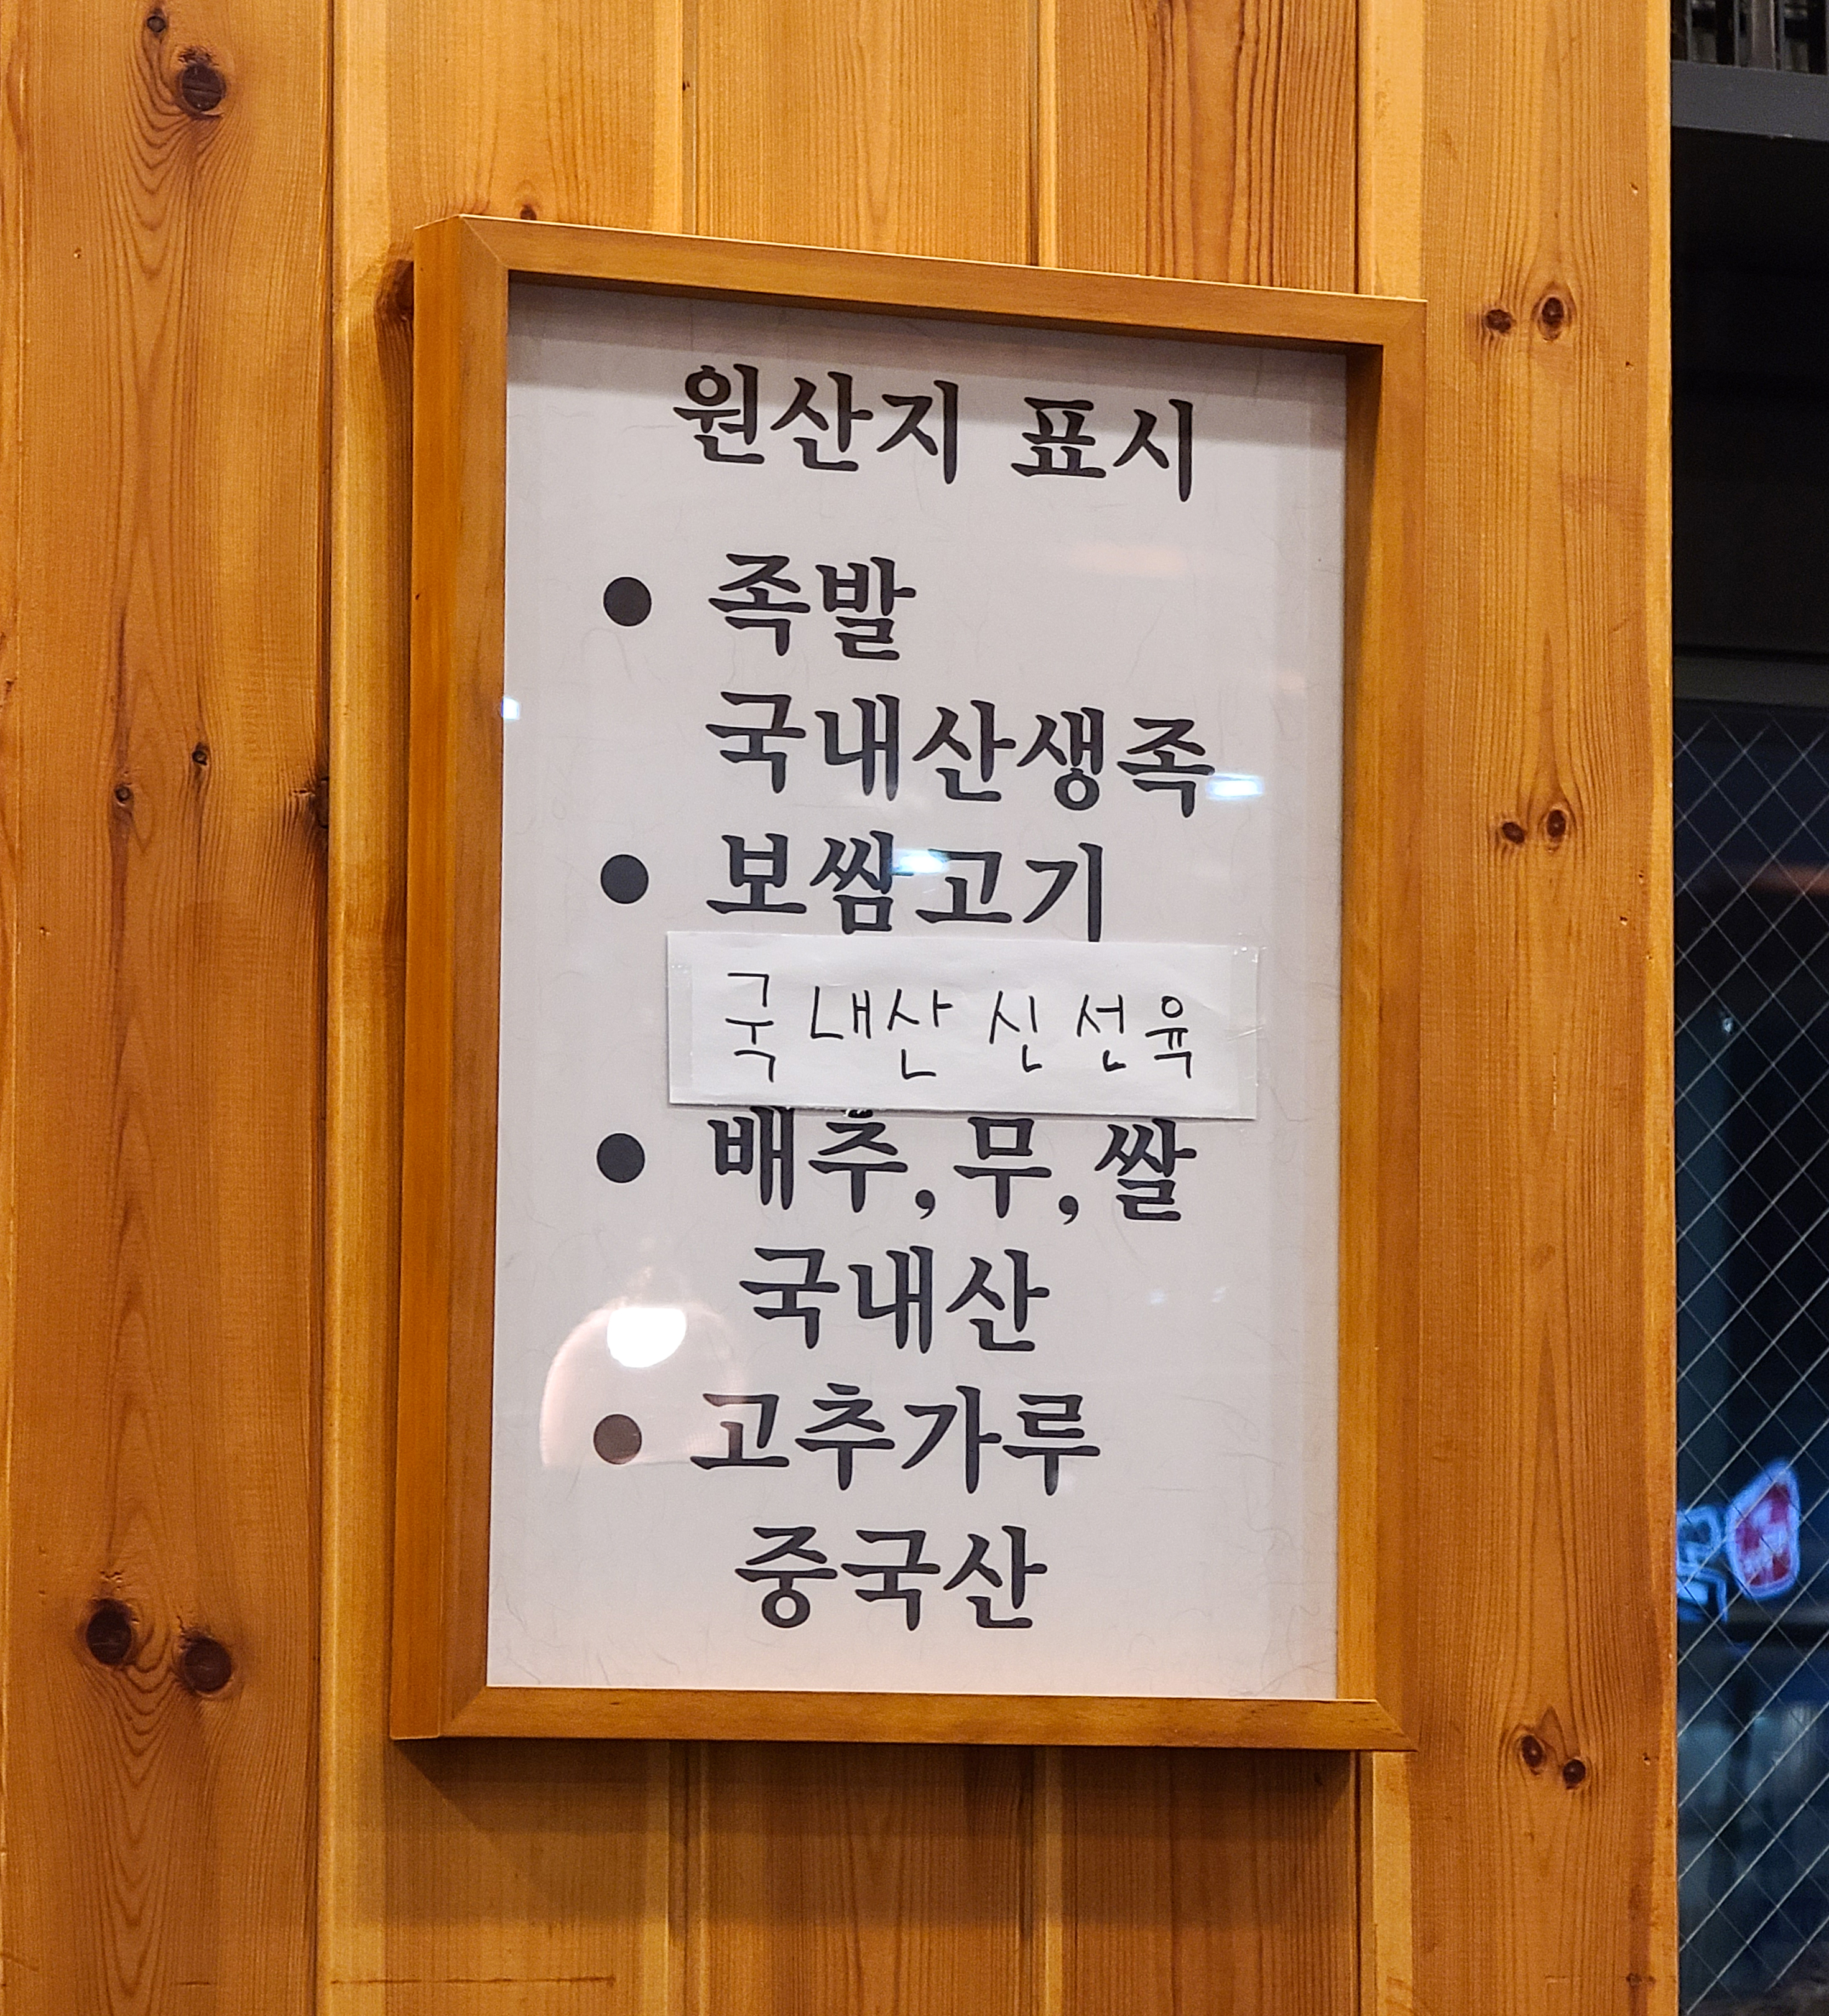 원산지 표시
● 족발
국내산생족
● 보쌈고기
국내산 신선육
● 배추, 무, 쌀
국내산
● 고추가루
중국산